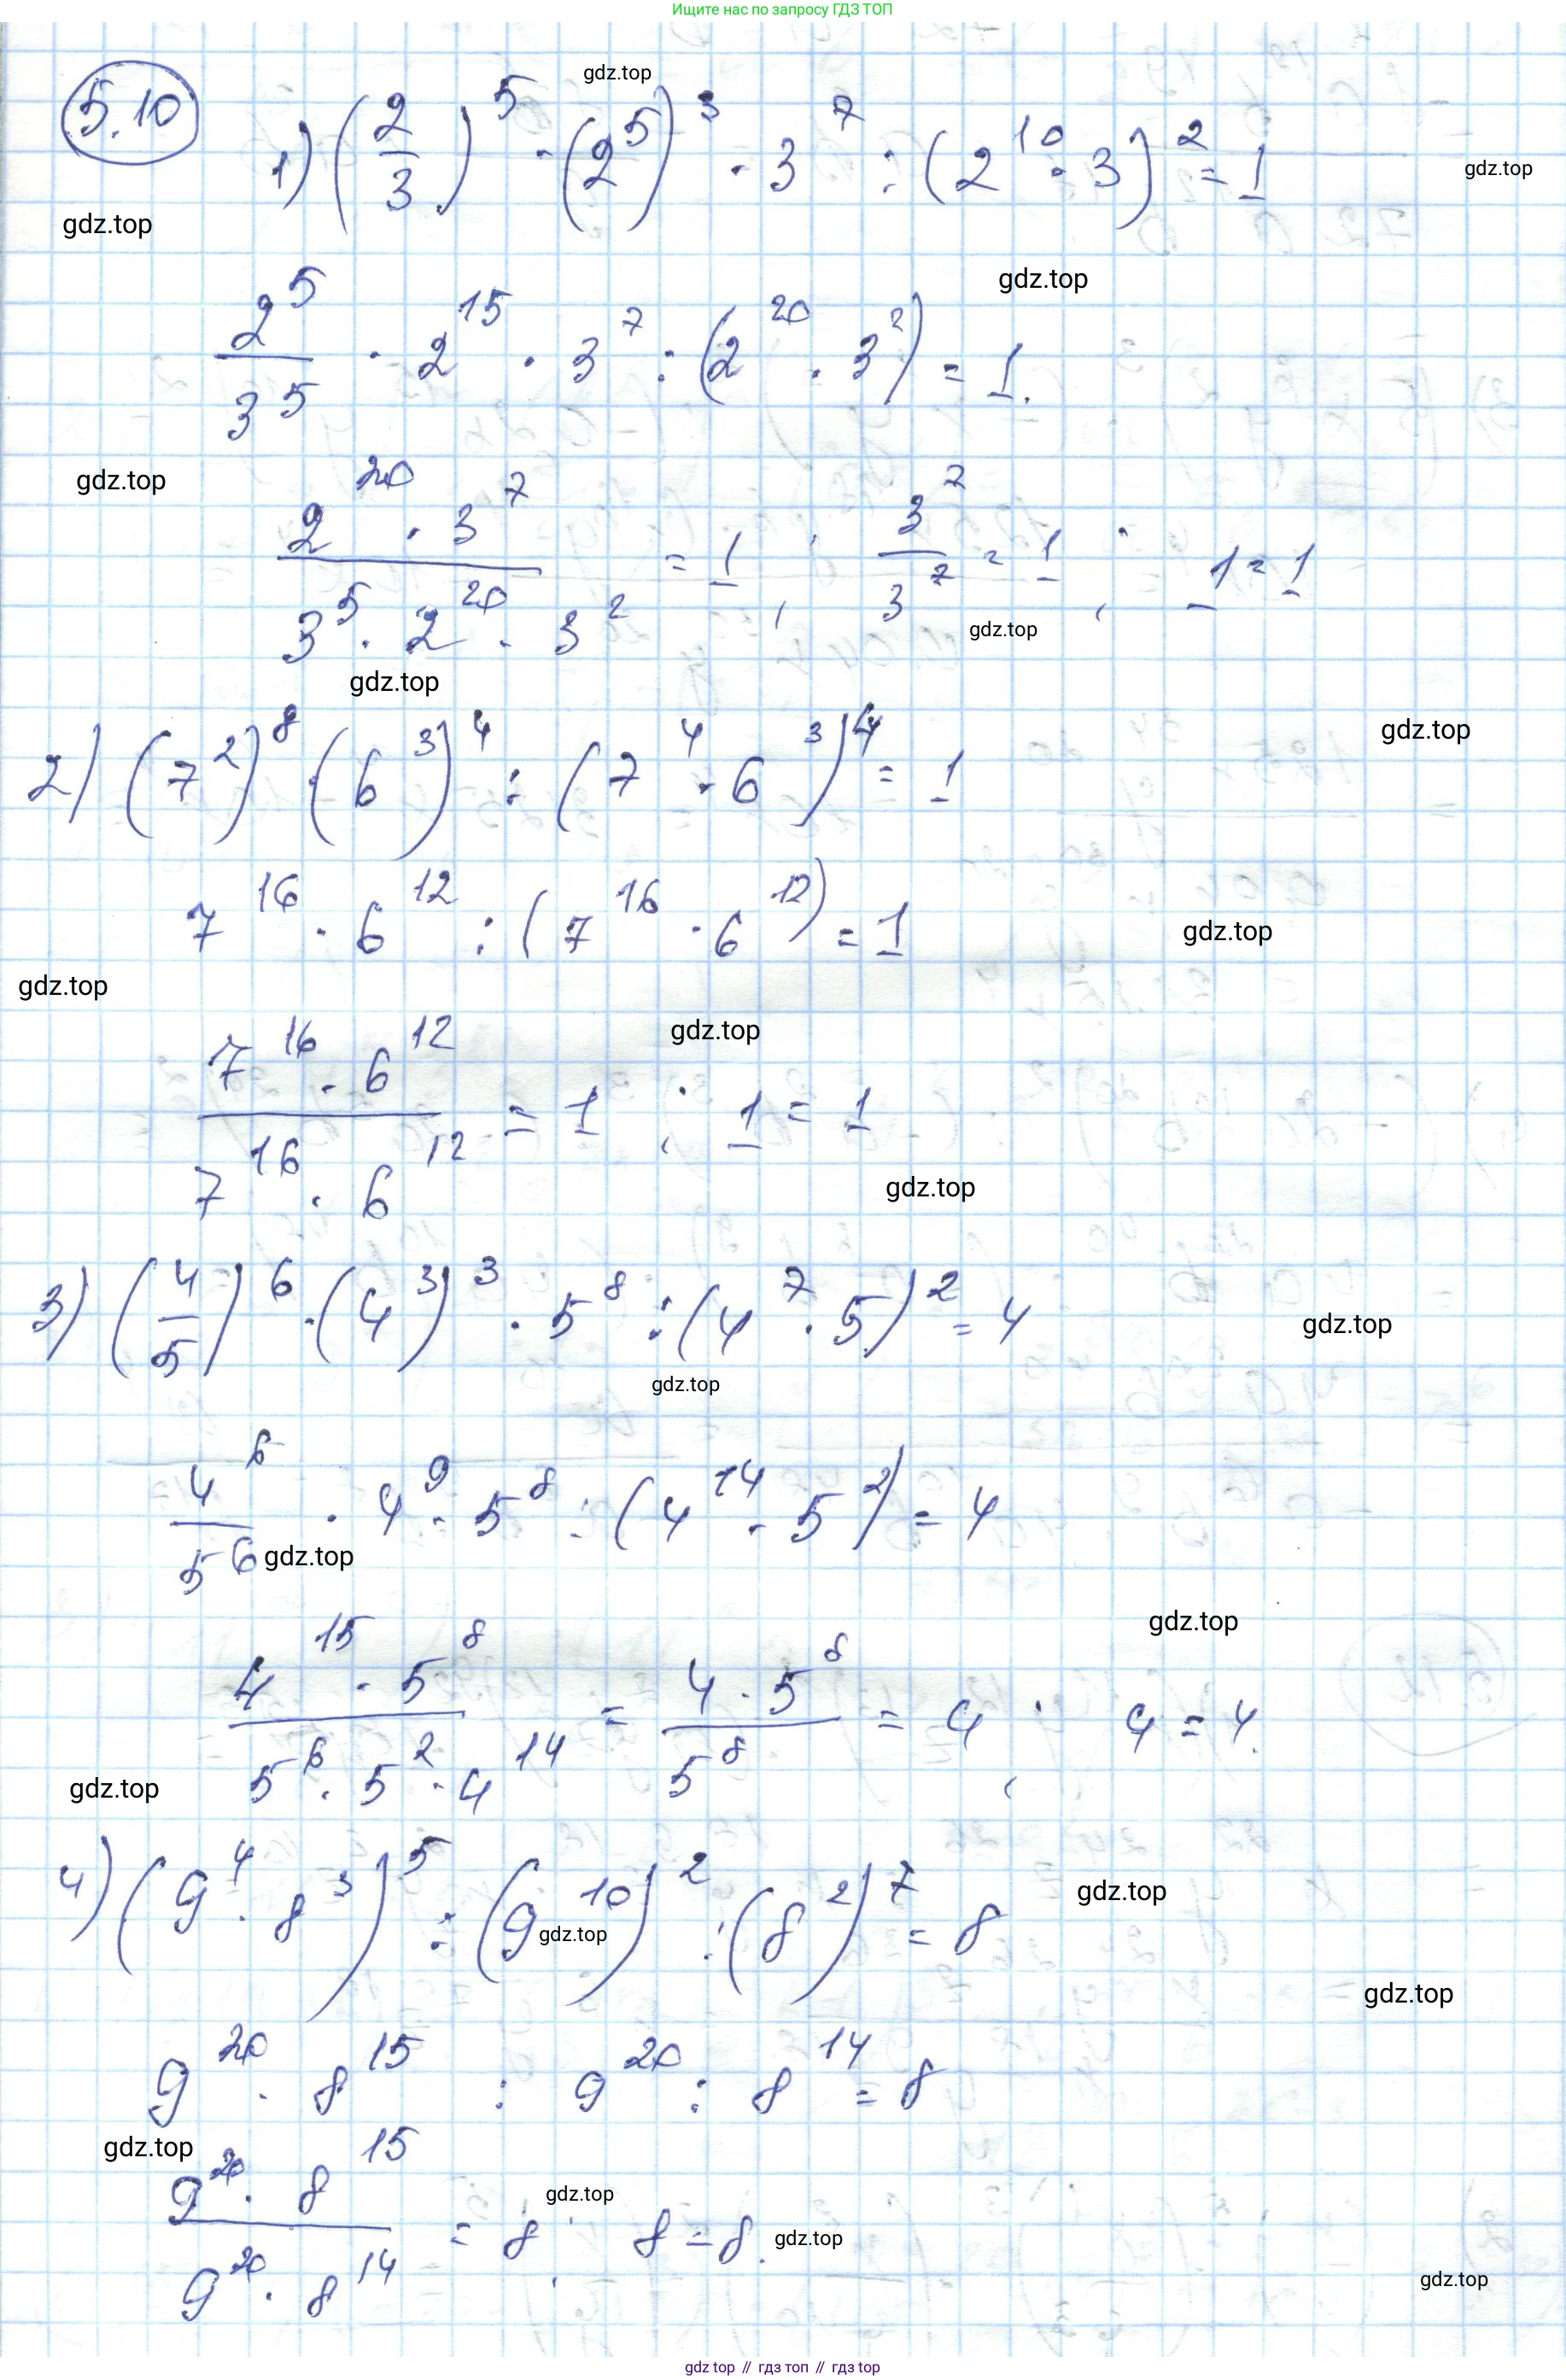 Ищите нас по запросу ГДЗ ТОП
gdz.top
5.10 1) (2/3)^5 · (2^5)^3 · 3^7 : (2^10 · 3)^2 = 1
gdz.top
gdz.top
gdz.top
2^5/3^5 · 2^15 · 3^7 : (2^20 · 3^2) = 1.
gdz.top
(2^20 · 3^7)/(3^5 · 2^20 · 3^2) = 1 ; 3^7/3^7 = 1 ; 1 = 1
gdz.top
gdz.top
gdz.top
2) (7^2)^8 · (6^3)^4 : (7^4 · 6^3)^4 = 1
7^16 · 6^12 : (7^16 · 6^12) = 1
gdz.top
gdz.top
gdz.top
(7^16 · 6^12)/(7^16 · 6^12) = 1 ; 1 = 1
gdz.top
3) (4/5)^6 · (4^3)^3 · 5^8 : (4^7 · 5)^2 = 4
gdz.top
gdz.top
4^6/5^6 · 4^9 · 5^8 : (4^14 · 5^2) = 4
gdz.top
gdz.top
(4^15 · 5^8)/(5^6 · 5^2 · 4^14) = (4 · 5^8)/5^8 = 4 ; 4 = 4.
gdz.top
4) (9^4 · 8^3)^5 : (9^10)^2 : (8^2)^7 = 8
gdz.top
gdz.top
gdz.top
9^20 · 8^15 : 9^20 : 8^14 = 8
gdz.top
(9^20 · 8^15)/(9^20 · 8^14) = 8 ; 8 = 8.
gdz.top
gdz.top
gdz.top
gdz top // гдз топ // гдз top